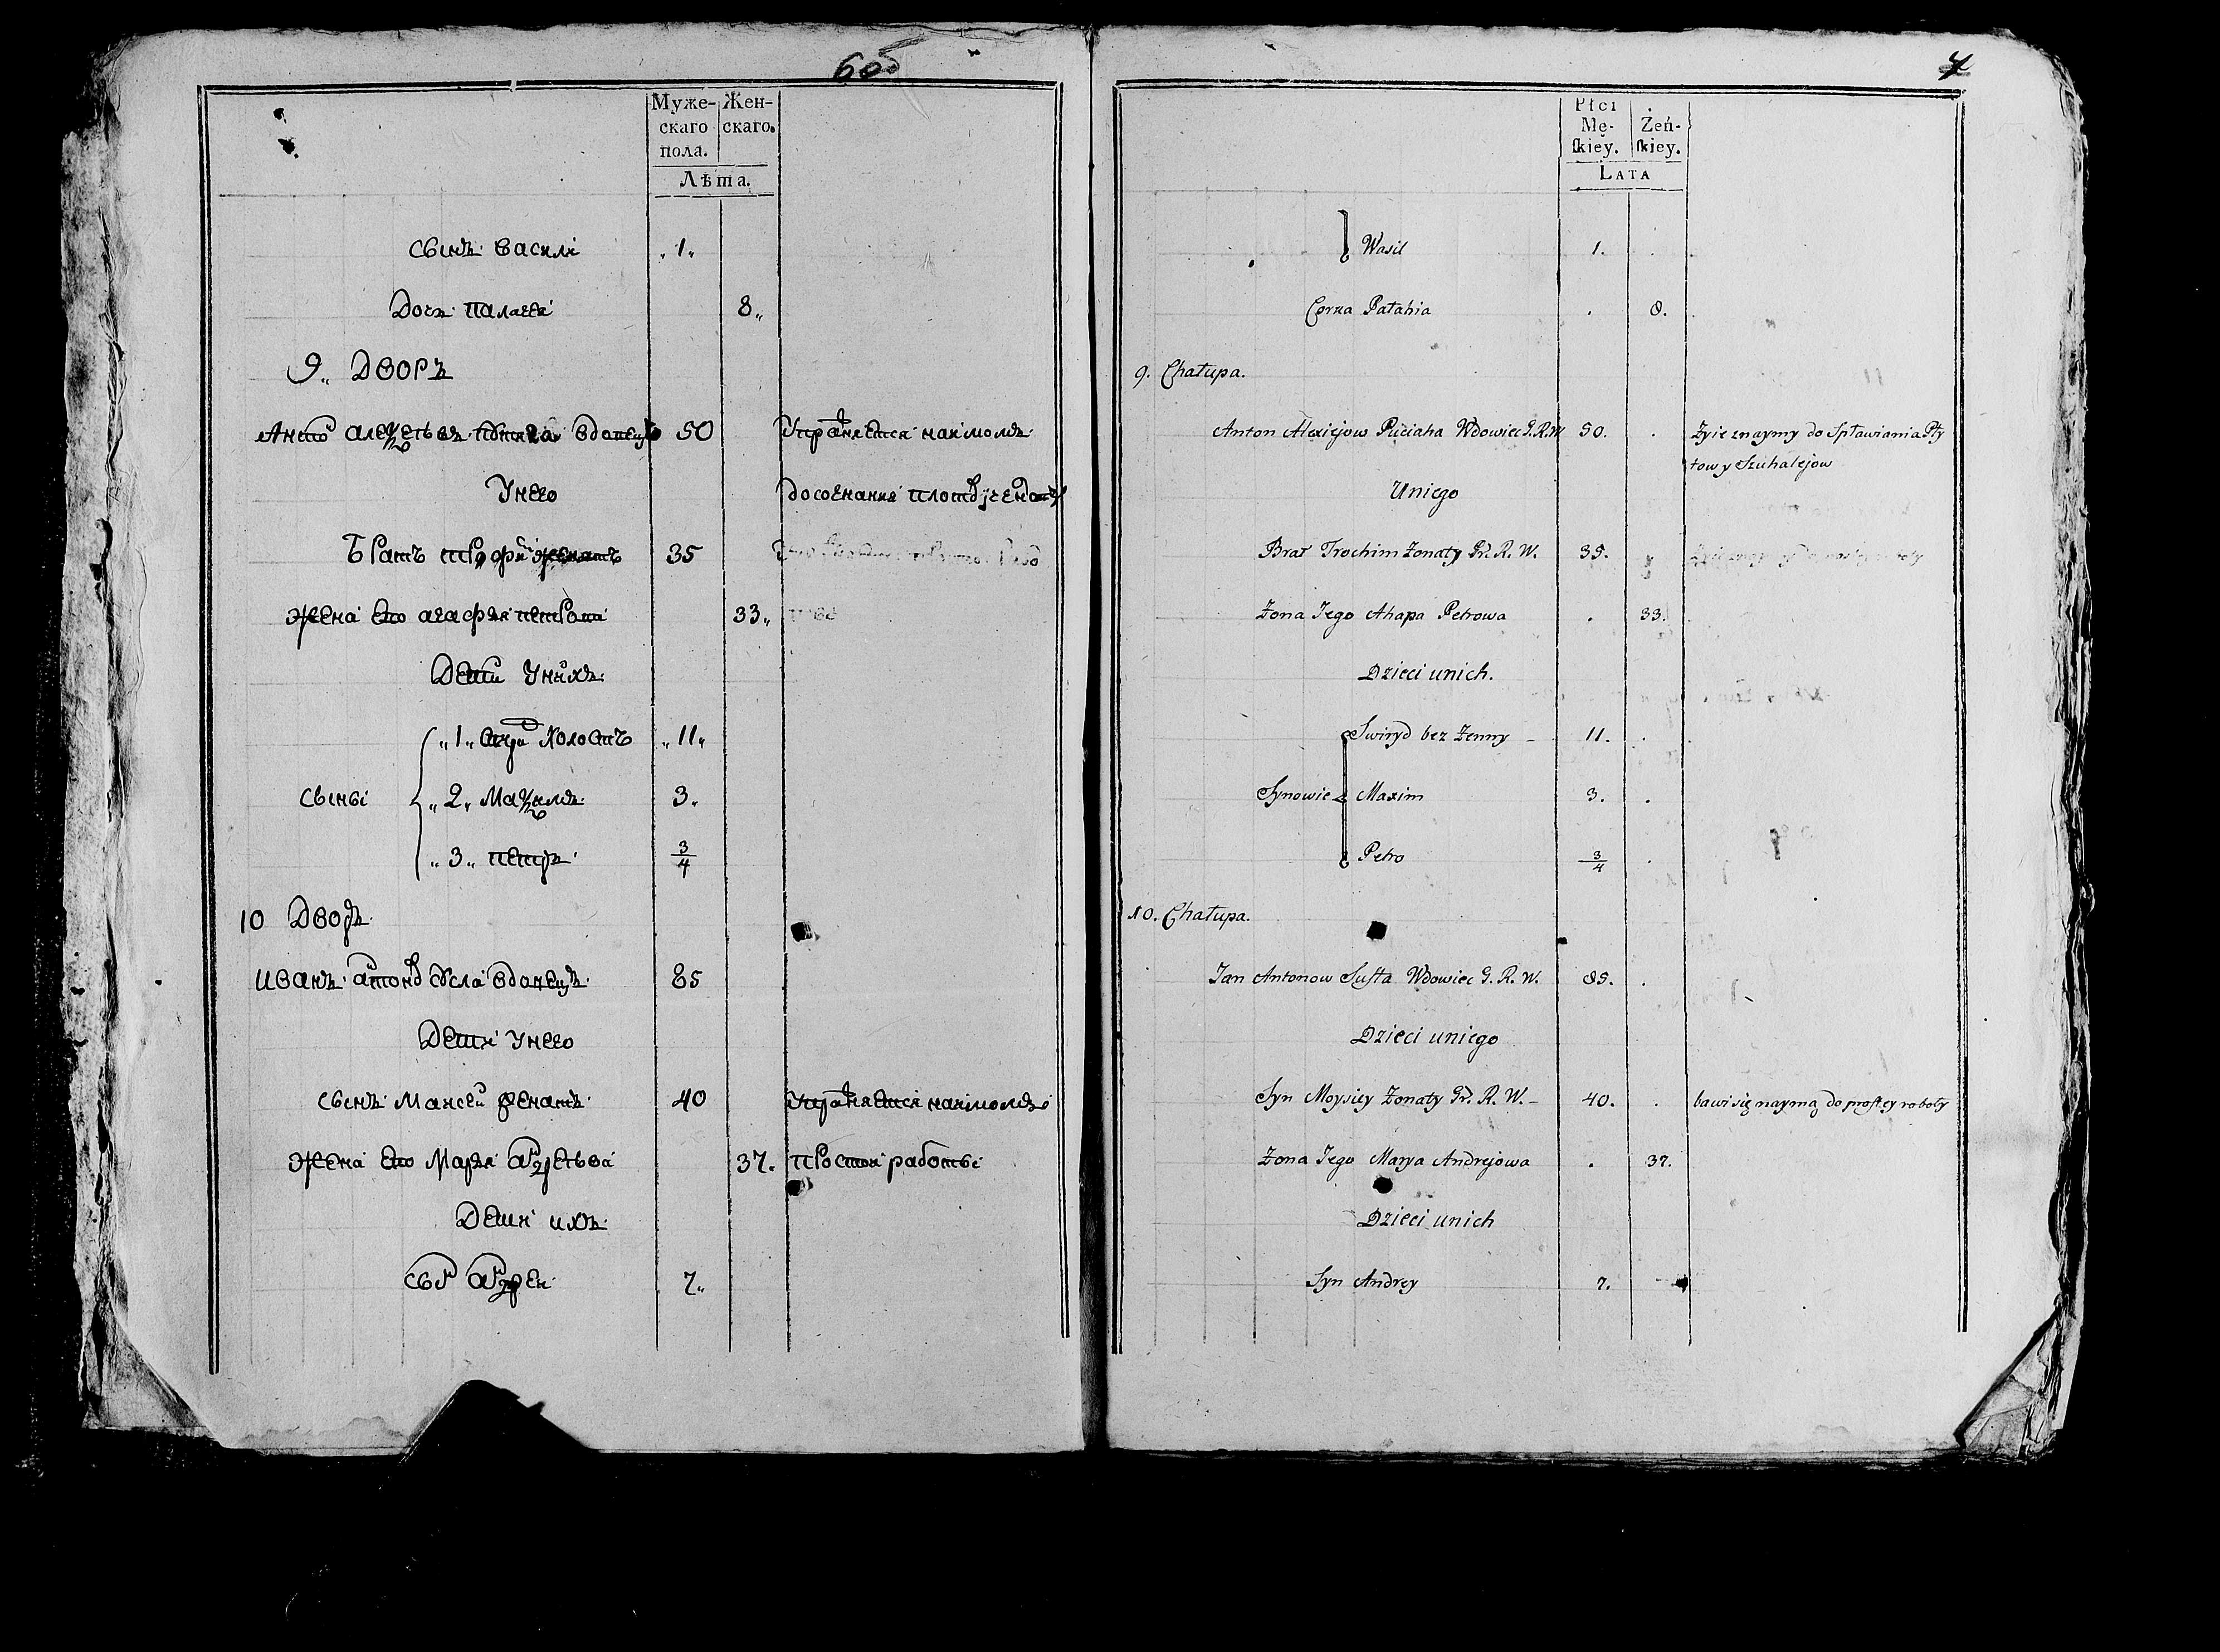 6 об
Муже-
скаго
пола.
Жен-
скаго.
Лѣта.
сынъ василі 1
Дочъ палагеі 8
9 Дворъ
Антоⁿ алеѯеевъ вдовецъ 50 Упражняется наймомъ
У него до согнания плотоⱽ
Братъ трофиᴹ женатъ 35
жена его агафья петрова 33
Дети у нихъ
сыны
1 холостъ 11
2 Маѯимъ 3
3 петръ 3/4
10 Дворъ
иванъ антоноⱽ вдовецъ 85
Дети у него
сынъ Мансей женатъ 40 Упражняется наймомъ
жена его Марья андреева 37 простои работы
Дети ихъ
сынъ андреи 7
7
Płci
Mę-
ſkiey.
Żeń-
ſkiey.
LATA
Wasil 1.
Corka Pałahia 8.
9. Chałupa.
Anton Alexiejow Puciaha Wdowiec G.R.W 50. Żyie znaymy do Spławiania Pły
tow y Szuhalejow
Uniego
Brat Trochim Żonaty Gr. R. W. 35.
Żona Jego Ahapa Petrowa 33.
Dzieci unich.
Swiryd bez Żenny 11.
Synowie Maxim 3.
Petro 3/4
10. Chałupa.
Jan Antonow Susła Wdowiec G. R. W. 85.
Dzieci uniego
Syn Moysiey Żonaty Gr. R. W. 40. bawi się naymą do proſtey roboty
Żona Jego Marya Andrejowa 37.
Dzieci unich
Syn Andrey 7.